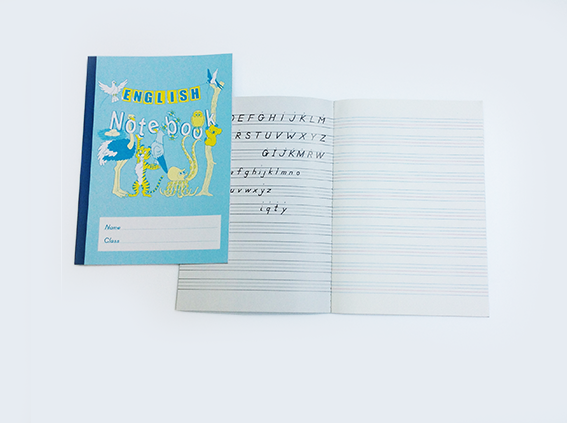 ENGLISH
Notebook
Name
Class
DEFGHIJKLM
RSTUVWXYZ
GIJKMRW
efghijklmno
uvwxyz
iqty